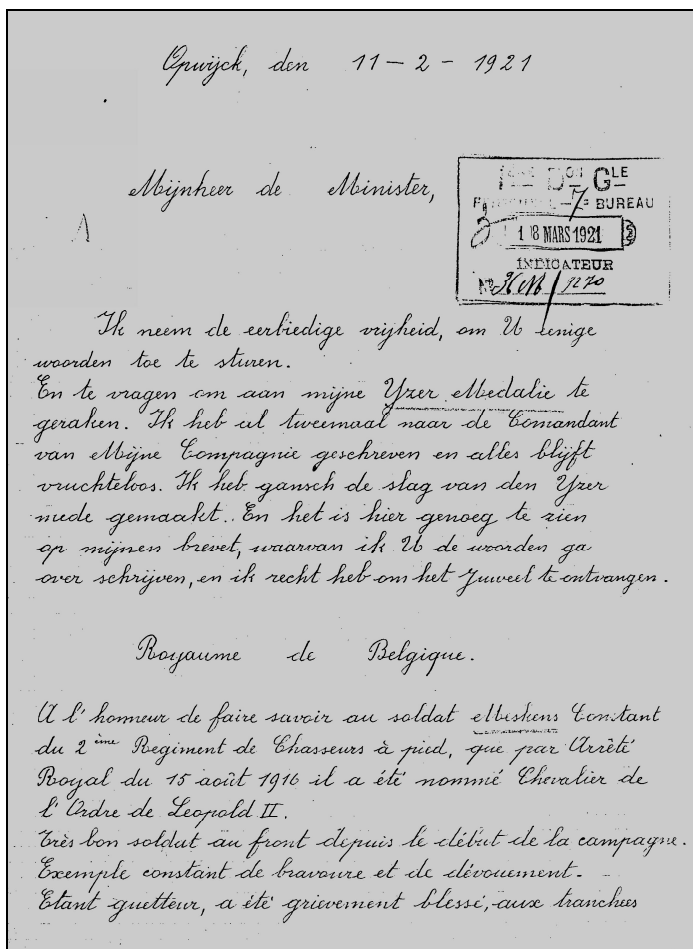 Opwijck, den 11 - 2 - 1921
Mijnheer de Minister,
D GLE
BUREAU
18 MARS 1921
INDICATEUR
Ik neem de eerbiedige vrijheid, om U eenige
woorden toe te sturen.
En te vragen om aan mijne Yzer Medalie te
geraken. Ik heb al tweemaal naar de Comandant
van Mijne Compagnie geschreven en alles blijft
vruchteloos. Ik heb gansch de slag van den Yzer
mede gemaakt. En het is hier genoeg te zien
op mijnen brevet, waarvan ik U de woorden ga
over schrijven, en ik recht heb om het Juweel te ontvangen.
Royaume de Belgique.
A l'honneur de faire savoir au soldat Meskens Constant
du 2ème Regiment de Chasseurs à pied, que par Arrêté
Royal du 15 août 1916 il a été nommé Chevalier de
l'Ordre de Leopold II.
Très bon soldat au front depuis le début de la campagne.
Exemple constant de bravoure et de dévouement.
Etant guetteur, a été grievement blessé, aux tranchees